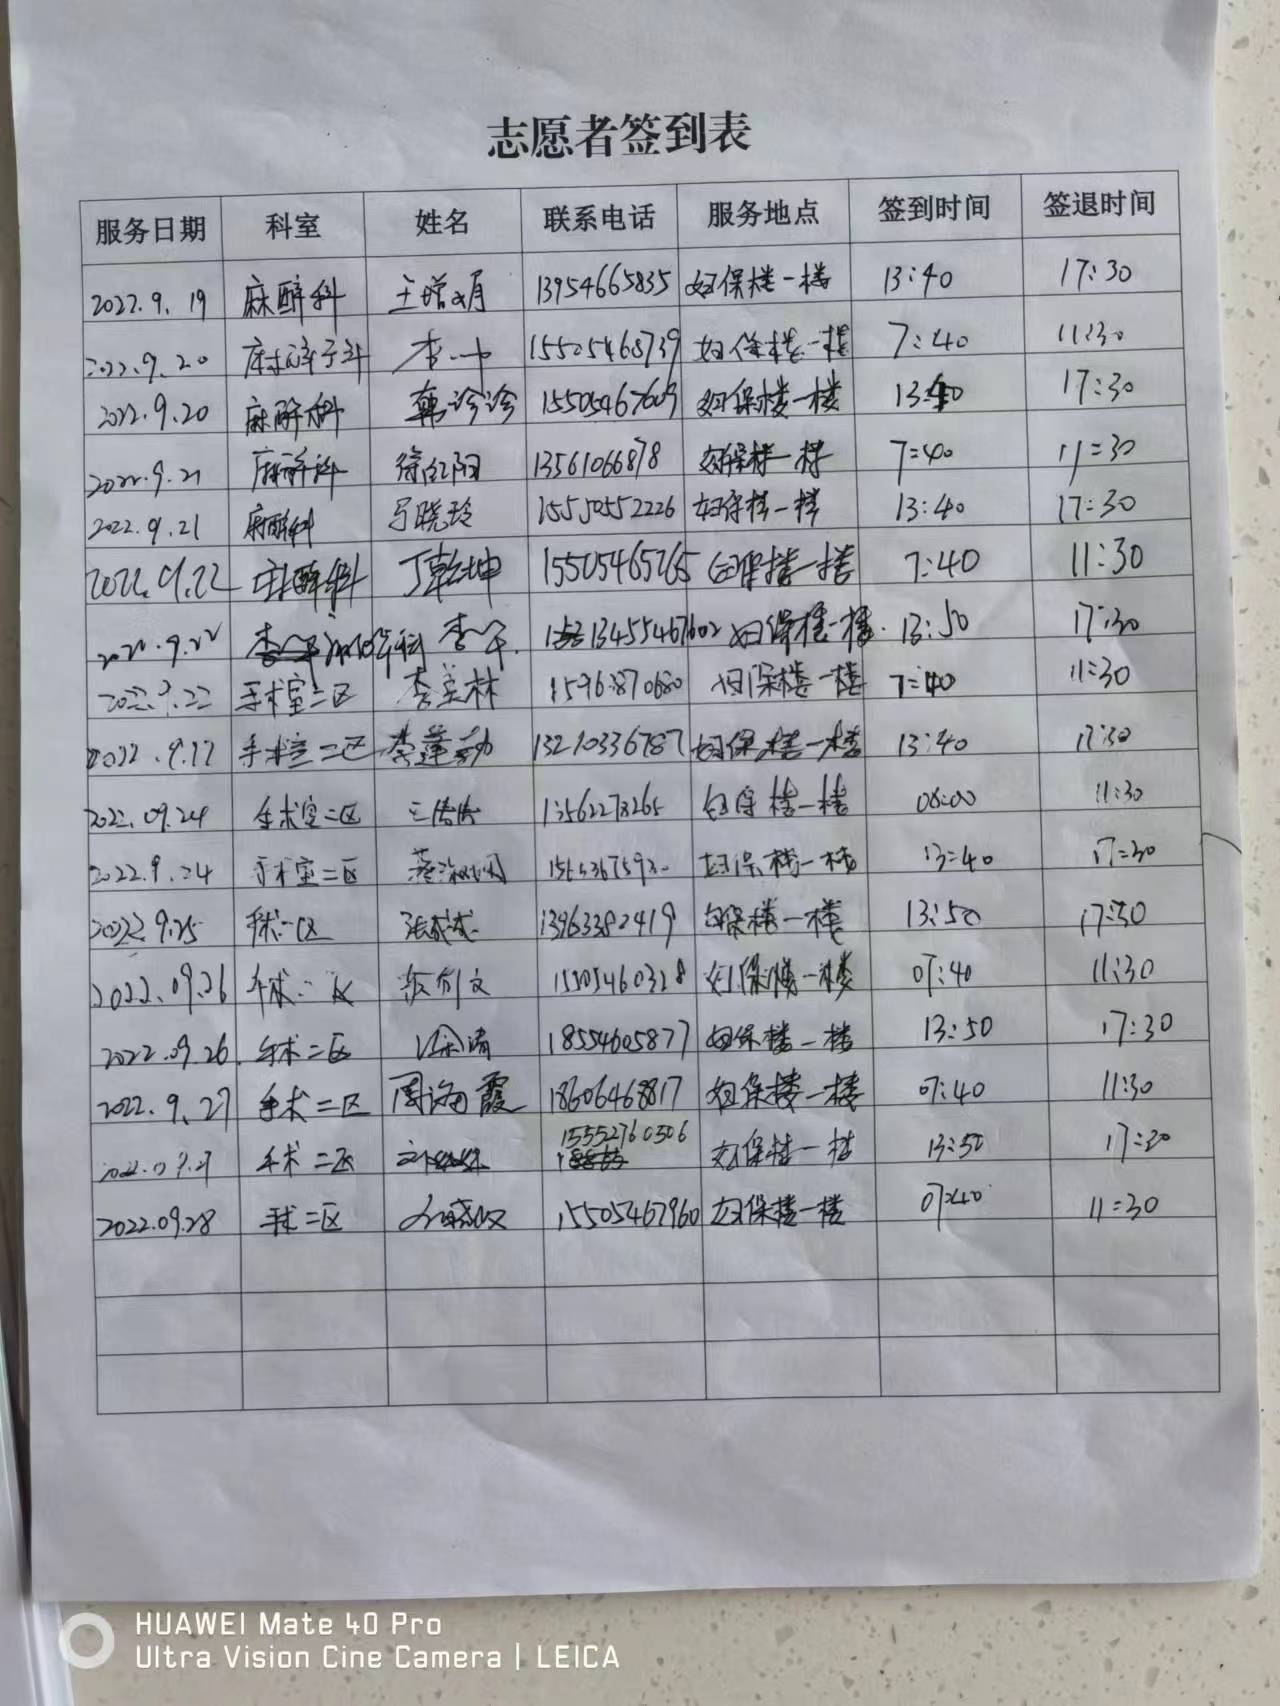 志愿者签到表
服务日期 科室 姓名 联系电话 服务地点 签到时间 签退时间
2022.9.19 麻醉科 13954665835 妇保楼一楼 13:40 17:30
2022.9.20 麻醉科 李一中 15505468739 妇保楼一楼 7:40 11:30
2022.9.20 麻醉科 韩诊诊 15505467609 妇保楼一楼 13:40 17:30
2022.9.21 麻醉科 徐红阳 13561066878 妇保楼一楼 7:40 11:30
2022.9.21 麻醉科 弓晓玲 15550552226 妇保楼一楼 13:40 17:30
2022.9.22 麻醉科 丁乾坤 15505465265 妇保楼一楼 7:40 11:30
2022.9.22 麻醉科 13455467602 妇保楼一楼 13:50 17:30
2022.9.22 手术室二区 李美林 15963870680 妇保楼一楼 7:40 11:30
手术室二区 13210336787 妇保楼一楼 13:40 17:30
2022.09.24 手术室二区 13562278265 妇保楼一楼 08:00 11:30
2022.9.24 手术室二区 妇保楼一楼 13:40 17:30
2022.9.25 手术二区 13963382419 妇保楼一楼 13:50 17:30
2022.09.26 手术二区 15505460328 妇保楼一楼 07:40 11:30
2022.09.26 手术二区 18554605877 妇保楼一楼 13:50 17:30
2022.9.27 手术二区 周海霞 18606468817 妇保楼一楼 07:40 11:30
手术二区 15552760506 妇保楼一楼 13:50 17:30
2022.09.28 手术二区 15505467960 妇保楼一楼 07:40 11:30
HUAWEI Mate 40 Pro
Ultra Vision Cine Camera | LEICA